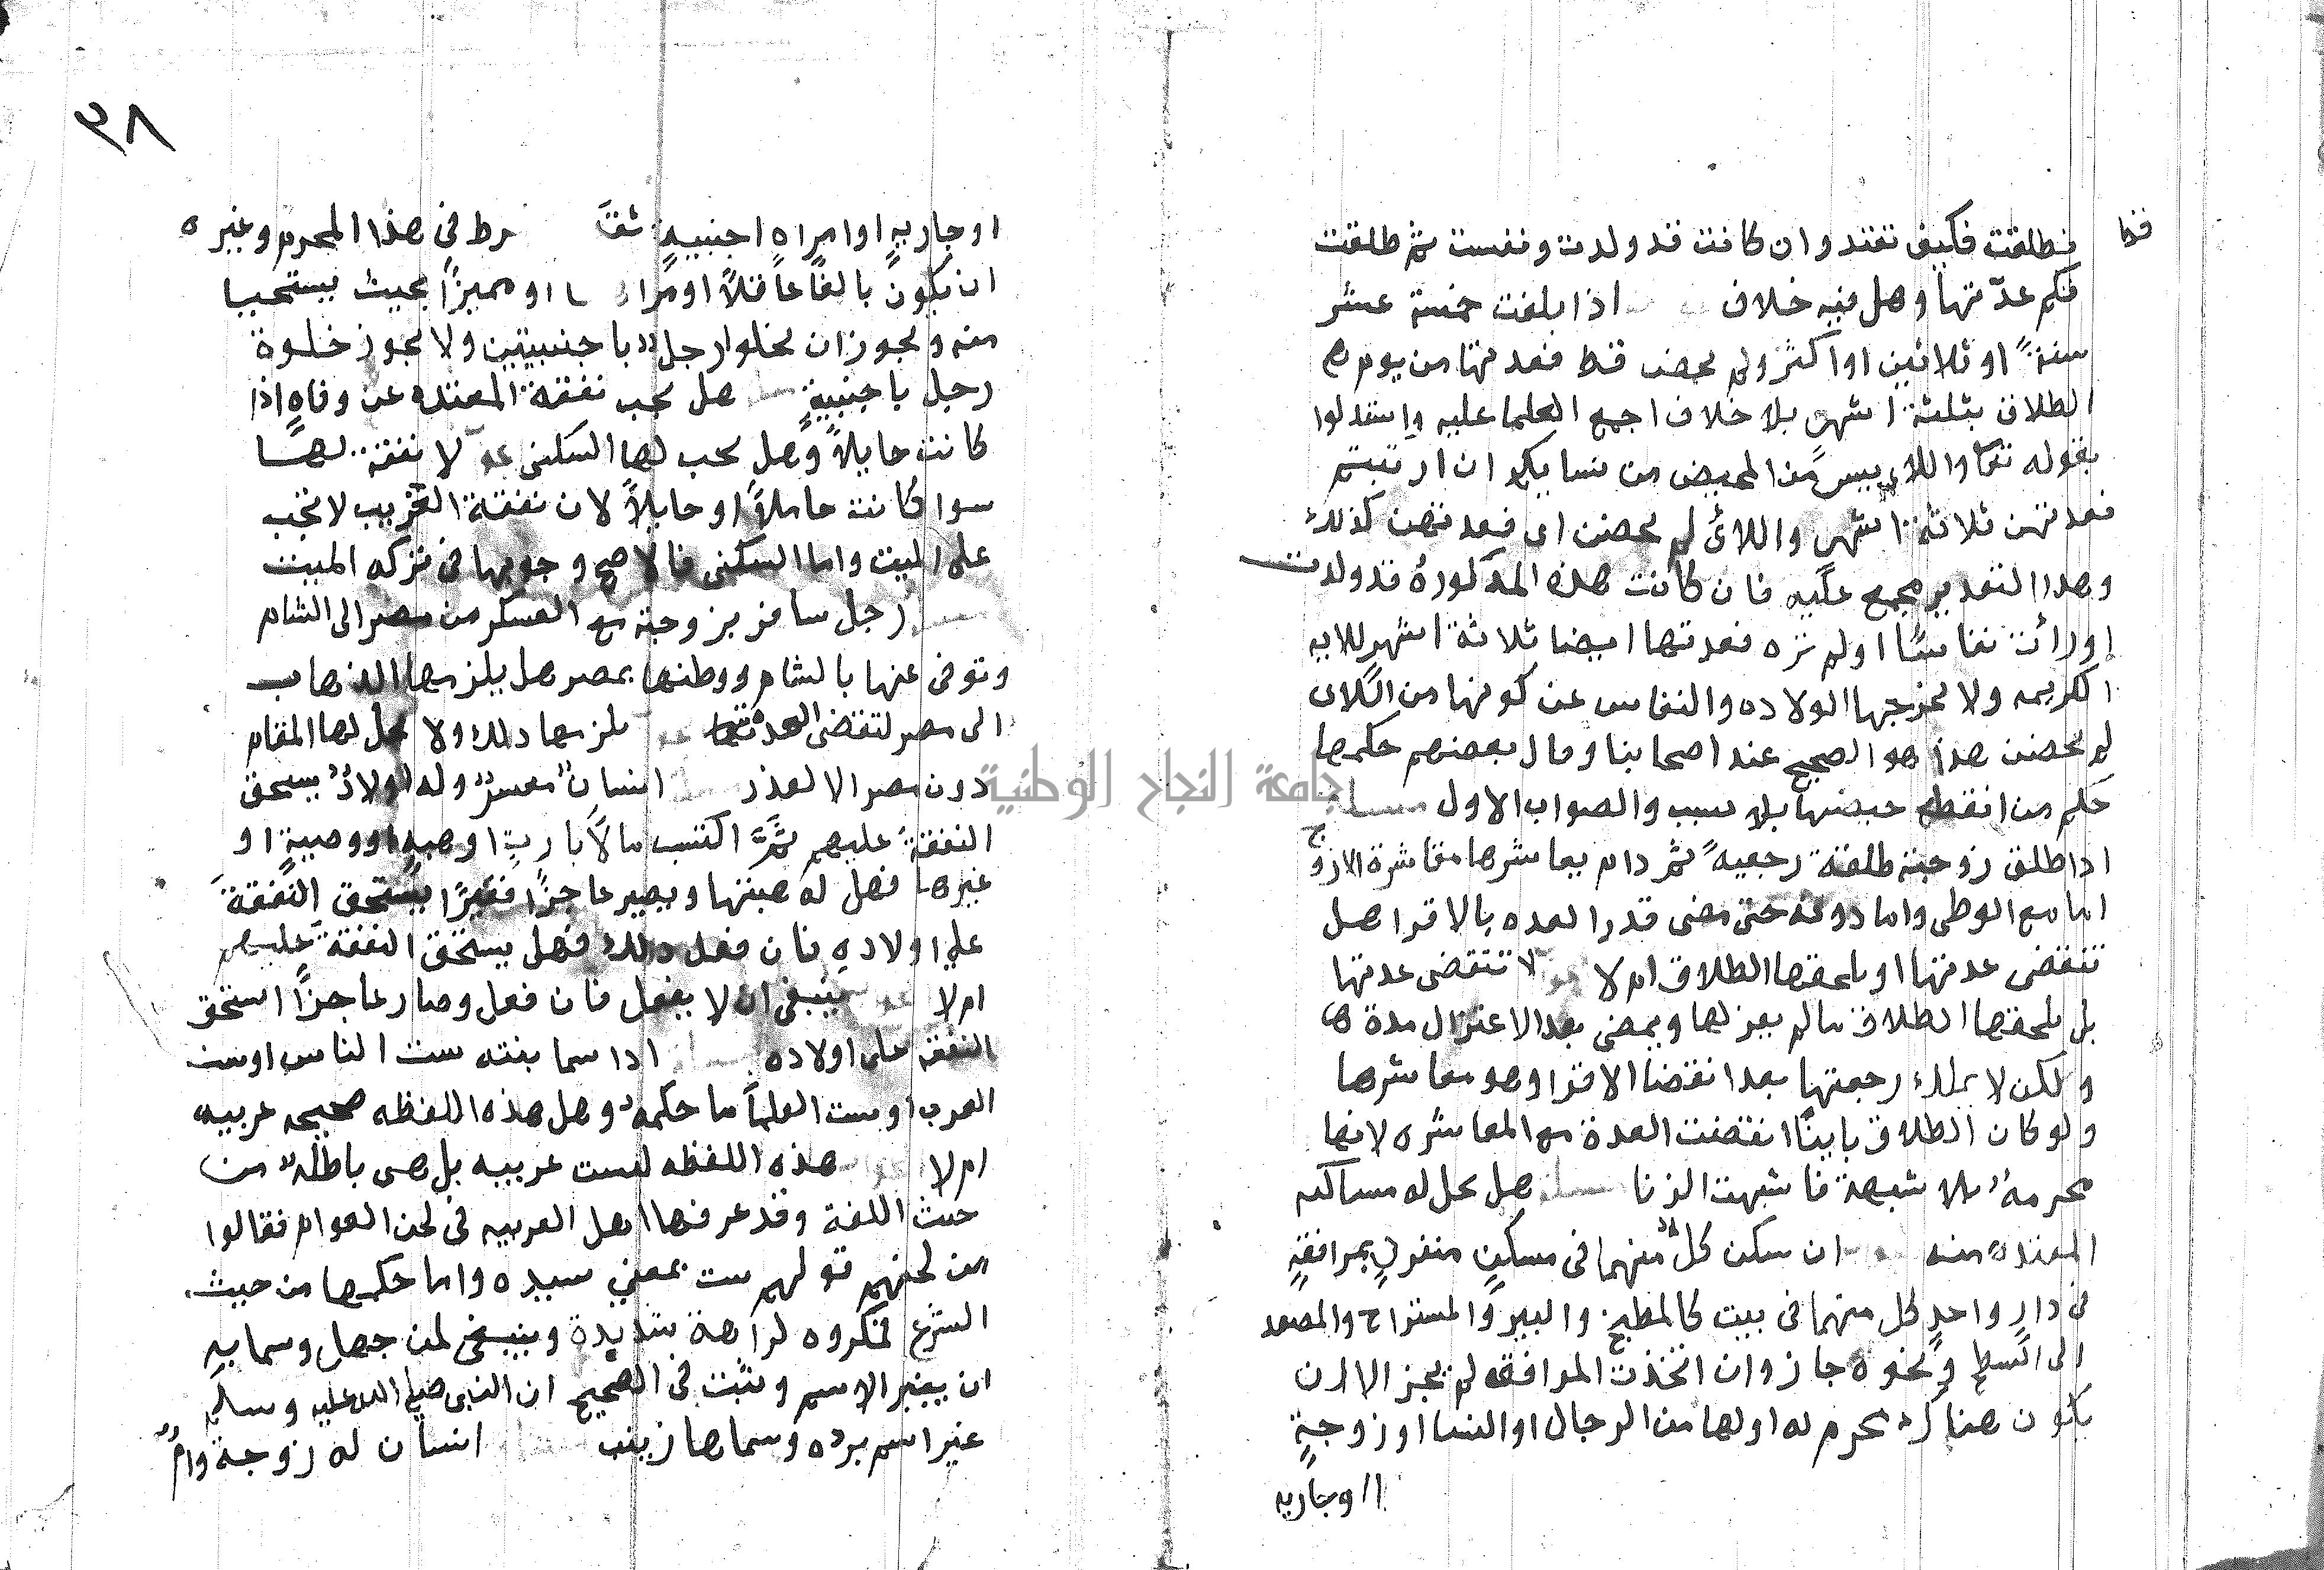 فطلقت فكيف تعتد وان كانت قد ولدت ونفست ثم طلقت
فكم عدتها وهل فيه خلاف اذا بلغت خمسة عشر
سنةً او ثلاثين او اكثر ولم تحض قط فعدتها من يوم
الطلاق بثلثة اشهر بلا خلاف اجمع العلما عليه واستدلوا
بقوله تعا واللاى ييسن من المحيض من نسايكم ان ارتبتم
فعدتهن ثلاثة اشهر واللائ لم يحضن اى فعدتهن كذلك
وهدا التقدير مجمع عليه فان كانت هذه المذكورة قد ولدت
اورأت نفاسًا اولم تره فعدتها ايضا ثلاثة اشهر للايه
الكريمه ولا يخرجها الولاده والنفاس عن كونها من اللاى
لم يحضن هذا هو الصحيح عند اصحابنا وقال بعضهم حكمها
حكم من انقطع حيضها بلا سبب والصواب الاول مسله
اذا طلق زوجته طلقة رجعيهً ثم دام يعاشرها معاشرة الازوج
اما مع الوطى واما دونه حتى مضى قدر العده بالاقرا هل
تنقضى عدتها او يلحقها الطلاق ام لا لا تنقضى عدتها
بل يلحقها الطلاق مالم يعزلها ويمضى بعد الاعتزال مدة
ولكن لا يملك رجعتها بعد انقضا الاقرا وهو معاشرها
ولو كان الطلاق باينًا انقضت العدة مع المعاشره لانها
محرمةٌ بلا شبهة فاشبهت الزنا مسله هل يحل له مساكنه
المعتده منه ان سكن كلٌ منهما فى مسكنٍ منفردٍ بمرافقةٍ
فى دارٍ واحدٍ كل منهما فى بيت كالمطبخ والبير والمستراح والمصعد
الى السطح ونحوه جاز وان اتخذت المرافقه لم يجز الا ان
يكون هناك محرم له اولها من الرجال او النسا اوزوجةٍ
اوجاريه
٣٨
اوجاريةٍ او امراهٍ اجنبيهٍ ثقة رط فى هذا المحرم وغيره
ان يكون بالغًا عاقلاً او مرا ا او مميزًا بحيث يستحيا
منه ويجوز ان يخلوا رجلٌ باجنبيتين ولا يجوز خلوة
رجل باجنبيةٍ هل يجب نفقة المعتده عن وفاةٍ اذا
كانت حايلاً وهل يجب لها السكنى لا نفقة لها
سوا كانت حاملاً او حايلاً لان نفقة القريب لا تجب
على الميت واما السكنى فالاصح وجوبها فى تركه الميت
رجل سافر بزوجته مع العسكر من مصر الى الشام
وتوفى عنها بالشام ووطنها بمصر هل يلزمها الذهاب
الى مصر لتقضى العدة يلزمها دلك ولا يحل لها المقام
دون مصر الا لعذر انسانٌ معسرٌ وله اولادٌ يستحق
النفقةَ عليهم ثمَّ اكتسب مالاً بارثٍ اوهبهٍ او وصيةٍ او
غيرها فهل له هبتها ويصير عاجزًا فقيرًا يستحق النفقةَ
على اولادهِ فان فعل دلك فهل يستحق النفقة عليهم
ام لا ينبغى ان لا يفعل فان فعل وصار عاجزًا استحق
النفقة على اولاده اذا سما بنته ست الناس اوست
العرب اوست العلمآ ما حكمه وهل هذه اللفظه صحيحه عربيه
ام لا هذه اللفظه ليست عربيه بل هى باطلةٌ من
حيث اللغة وقد عرفها اهل العربيه فى لحن العوام فقالوا
من لحنهم قولهم ست بمعنى سيده واما حكمها من حيث
الشرع فمكروه كراهة شديدة وينبغى لمن جهل وسما به
ان يغير الاسم وثبت فى الصحيح ان النبى صلى الله عليه وسلم
غير اسم بره وسماها زينب انسان له زوجة وامٌ